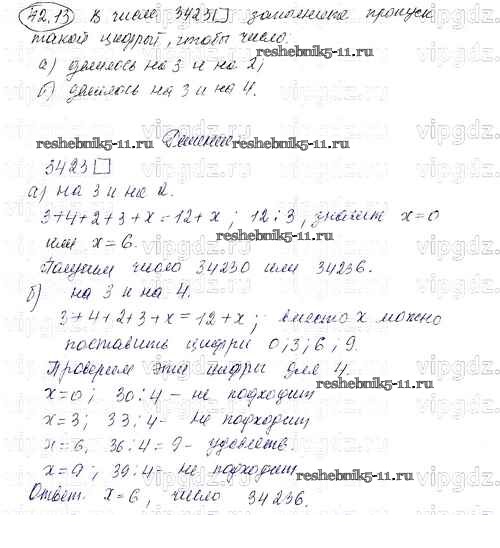 42.13 В числе 3423□ заполните пропуск
такой цифрой, чтобы число:
а) делилось на 3 и на 2;
б) делилось на 3 и на 4.
reshebnik5-11.ru
Решение
reshebnik5-11.ru
reshebnik5-11.ru
3423□
а) на 3 и на 2.
3+4+2+3+x=12+x; 12:3, значит x=0
reshebnik5-11.ru
или x=6.
Получим число 34230 или 34236.
б) на 3 и на 4.
3+4+2+3+x=12+x; вместо x можно
reshebnik5-11.ru
поставить цифры 0; 3; 6; 9.
Проверим эти цифры для 4.
reshebnik5-11.ru
x=0; 30:4 - не подходит
x=3; 33:4 - не подходит
x=6, 36:4=9 - удовлетв.
x=9; 39:4 - не подходит
reshebnik5-11.ru
Ответ: x=6, число 34236.